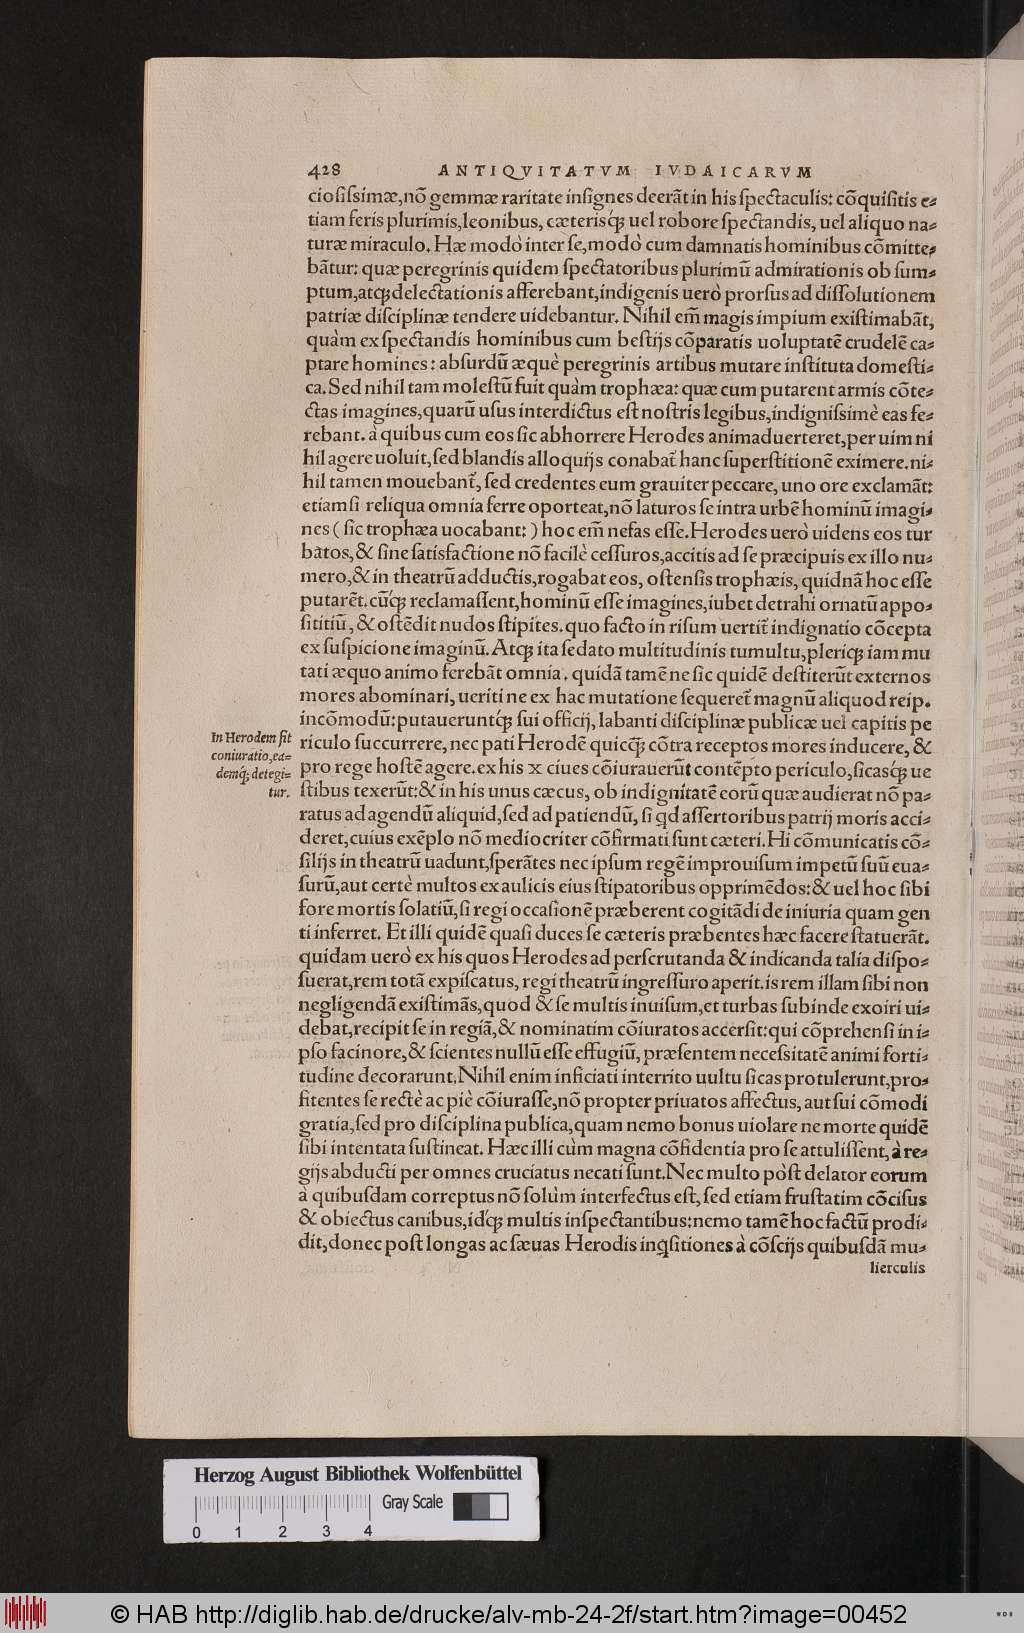 428 ANTIQVITATVM IVDAICARVM
ciosissimæ,nō gemmæ raritate insignes deerāt in his spectaculis: cōquisitis e-
tiam feris plurimis,leonibus, cæterisq́; uel robore spectandis, uel aliquo na-
turæ miraculo. Hæ modò inter se,modò cum damnatis hominibus cōmitte-
bātur: quæ peregrinis quidem spectatoribus plurimū admirationis ob sum-
ptum,atq; delectationis afferebant,indigenis uerò prorsus ad dissolutionem
patriæ disciplinæ tendere uidebantur. Nihil em̄ magis impium existimabāt,
quàm ex spectandis hominibus cum bestijs cōparatis uoluptatē crudelē ca-
ptare homines: absurdū æquè peregrinis artibus mutare instituta domesti-
ca. Sed nihil tam molestū fuit quàm trophæa: quæ cum putarent armis cōte-
ctas imagines,quarū usus interdictus est nostris legibus,indignissimè eas fe-
rebant. à quibus cum eos sic abhorrere Herodes animaduerteret,per uim ni
hil agere uoluit,sed blandis alloquijs conabat̄ hanc superstitionē eximere.ni-
hil tamen mouebant̄, sed credentes eum grauiter peccare, uno ore exclamāt:
etiamsi reliqua omnia ferre oporteat,nō laturos se intra urbē hominū imagi-
nes ( sic trophæa uocabant: ) hoc em̄ nefas esse. Herodes uerò uidens eos tur
batos, & sine satisfactione nō facilè cessuros,accitis ad se præcipuis ex illo nu-
mero,& in theatrū adductis,rogabat eos, ostensis trophæis, quidnā hoc esse
putarēt. cūq́; reclamassent,hominū esse imagines,iubet detrahi ornatū appo-
sititiū, & ostēdit nudos stipites. quo facto in risum uertit̄ indignatio cōcepta
ex suspicione imaginū. Atq; ita sedato multitudinis tumultu,pleriq; iam mu
tati æquo animo ferebāt omnia. quidā tamē ne sic quidē destiterūt externos
mores abominari, ueriti ne ex hac mutatione sequeret̄ magnū aliquod reip.
incōmodū: putaueruntq́; sui officij, labanti disciplinæ publicæ uel capitis pe
In Herodem sit
coniuratio,ea-
demq́; detegi-
tur.
riculo succurrere, nec pati Herodē quicq̄; cōtra receptos mores inducere, &
pro rege hostē agere. ex his x ciues cōiurauerūt contēpto periculo,sicasq́; ue
stibus texerūt: & in his unus cæcus, ob indignitatē eorū quæ audierat nō pa-
ratus ad agendū aliquid,sed ad patiendū, si qd assertoribus patrij moris acci-
deret,cuius exēplo nō mediocriter cōfirmati sunt cæteri. Hi cōmunicatis cō-
silijs in theatrū uadunt,sperātes nec ipsum regē improuisum impetū suū eua-
surū,aut certè multos ex aulicis eius stipatoribus opprimēdos: & uel hoc sibi
fore mortis solatiū,si regi occasionē præberent cogitādi de iniuria quam gen
ti inferret. Et illi quidē quasi duces se cæteris præbentes hæc facere statuerāt.
quidam uerò ex his quos Herodes ad perscrutanda & indicanda talia dispo-
suerat,rem totā expiscatus, regi theatrū ingressuro aperit. is rem illam sibi non
negligendā existimās,quod & se multis inuisum,et turbas subinde exoiri ui-
debat,recipit se in regiā,& nominatim cōiuratos accersit: qui cōprehensi in i-
pso facinore,& scientes nullū esse effugiū, præsentem necessitatē animi forti-
tudine decorarunt. Nihil enim inficiati interrito uultu sicas protulerunt,pro-
fitentes se rectè ac piè cōiurasse,nō propter priuatos affectus, aut sui cōmodi
gratia,sed pro disciplina publica,quam nemo bonus uiolare ne morte quidē
sibi intentata sustineat. Hæc illi cùm magna cōfidentia pro se attulissent, à re-
gijs abducti per omnes cruciatus necati sunt. Nec multo pòst delator eorum
à quibusdam correptus nō solùm interfectus est, sed etiam frustatim cōcisus
& obiectus canibus,idq́; multis inspectantibus: nemo tamē hoc factū prodi-
dit,donec post longas ac sæuas Herodis inqsitiones à cōscijs quibusdā mu-
lierculis
Herzog August Bibliothek Wolfenbüttel
Gray Scale
0 1 2 3 4
© HAB http://diglib.hab.de/drucke/alv-mb-24-2f/start.htm?image=00452